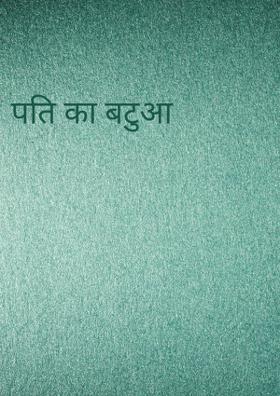 पति का बटुआ